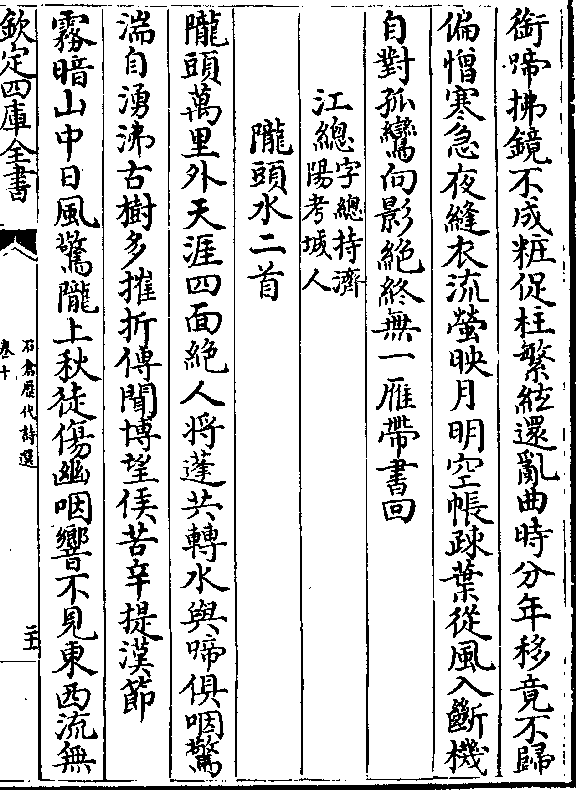 銜啼拂鏡不成粧促柱繁絃還亂曲時分年移竟不歸
偏憎寒急夜縫衣流螢映月明空帳疎葉從風入斷機
自對孤鸞向影絶終無一雁帶書回
江總字總持濟陽考城人
隴頭水二首
隴頭萬里外天涯四面絶人將蓬共轉水與啼俱咽驚
湍自湧沸古樹多摧折傳聞博望侯苦辛提漢節
霧暗山中日風驚隴上秋徒傷幽咽響不見東西流無
欽定四庫全書
石倉歷代詩選
卷十